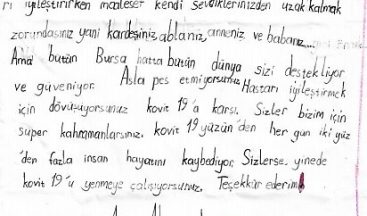 iyileştirirken maalesef kendi sevdiklerinizden uzak kalmak
zorundasınız yani kardeşiniz ablanız, anneniz ve babanız...
Ama bütün Bursa hatta bütün dünya sizi destekliyor
ve güveniyor. Asla pes etmiyorsunuz Hastarı iyileştirmek
için dövüşüyorsunuz kovit 19'a karşı. Sizler bizim için
süper kahramanlarsınız. kovit 19 yüzün'den her gün iki yüz
'den fazla insan hayatını kaybediyor. Sizlerse yinede
kovit 19'u yenmeye çalışıyorsunuz. Teşekkür ederim